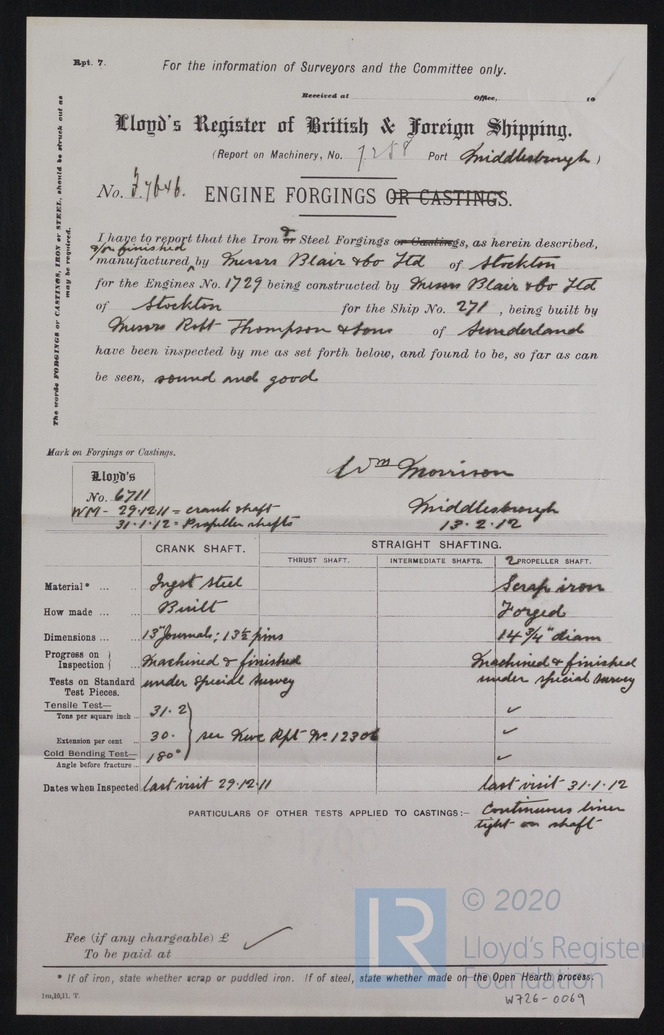 Rpt. 7.
For the information of Surveyors and the Committee only.
Received at Office, 19
Lloyd's Register of British & Foreign Shipping.
(Report on Machinery, No. 7258 Port Middlesbrough)
No. 37646. ENGINE FORGINGS OR CASTINGS.
The words FORGINGS or CASTINGS, IRON or STEEL, should be struck out as
may be required.
I have to report that the Iron or & Steel Forgings or Castings, as herein described,
&/or finished
manufactured by Messrs Blair & Co Ltd of Stockton
for the Engines No. 1729 being constructed by Messrs Blair & Co Ltd
of Stockton for the Ship No. 271, being built by
Messrs Robt Thompson & Sons of Sunderland
have been inspected by me as set forth below, and found to be, so far as can
be seen, sound and good
Mark on Forgings or Castings.
Lloyd's
No. 6711
WM - 29.12.11 = crank shaft
31.1.12 = Propeller shafts
Wm Morrison
Middlesbrough
13.2.12
CRANK SHAFT. STRAIGHT SHAFTING.
THRUST SHAFT. INTERMEDIATE SHAFTS. 2 PROPELLER SHAFT.
Material* ... ... Ingot steel Scrap iron
How made ... ... Built Forged
Dimensions ... ... 13" Journals; 13½ pins 14¾" diam
Progress on Inspection ... Machined & finished Machined & finished
Tests on Standard Test Pieces. under Special Survey under special survey
Tensile Test—
Tons per square inch ... 31.2 ✓
Extension per cent ... 30. see Newc Rpt No. 12306 ✓
Cold Bending Test—
Angle before fracture ... 180° ✓
Dates when Inspected last visit 29.12.11 last visit 31.1.12
PARTICULARS OF OTHER TESTS APPLIED TO CASTINGS:— Continuous liner
tight on shaft
Fee (if any chargeable) £ ✓
To be paid at
* If of iron, state whether scrap or puddled iron. If of steel, state whether made on the Open Hearth process.
1m,10,11. T.
W726-0069
LR
© 2020
Lloyd's Register
Foundation